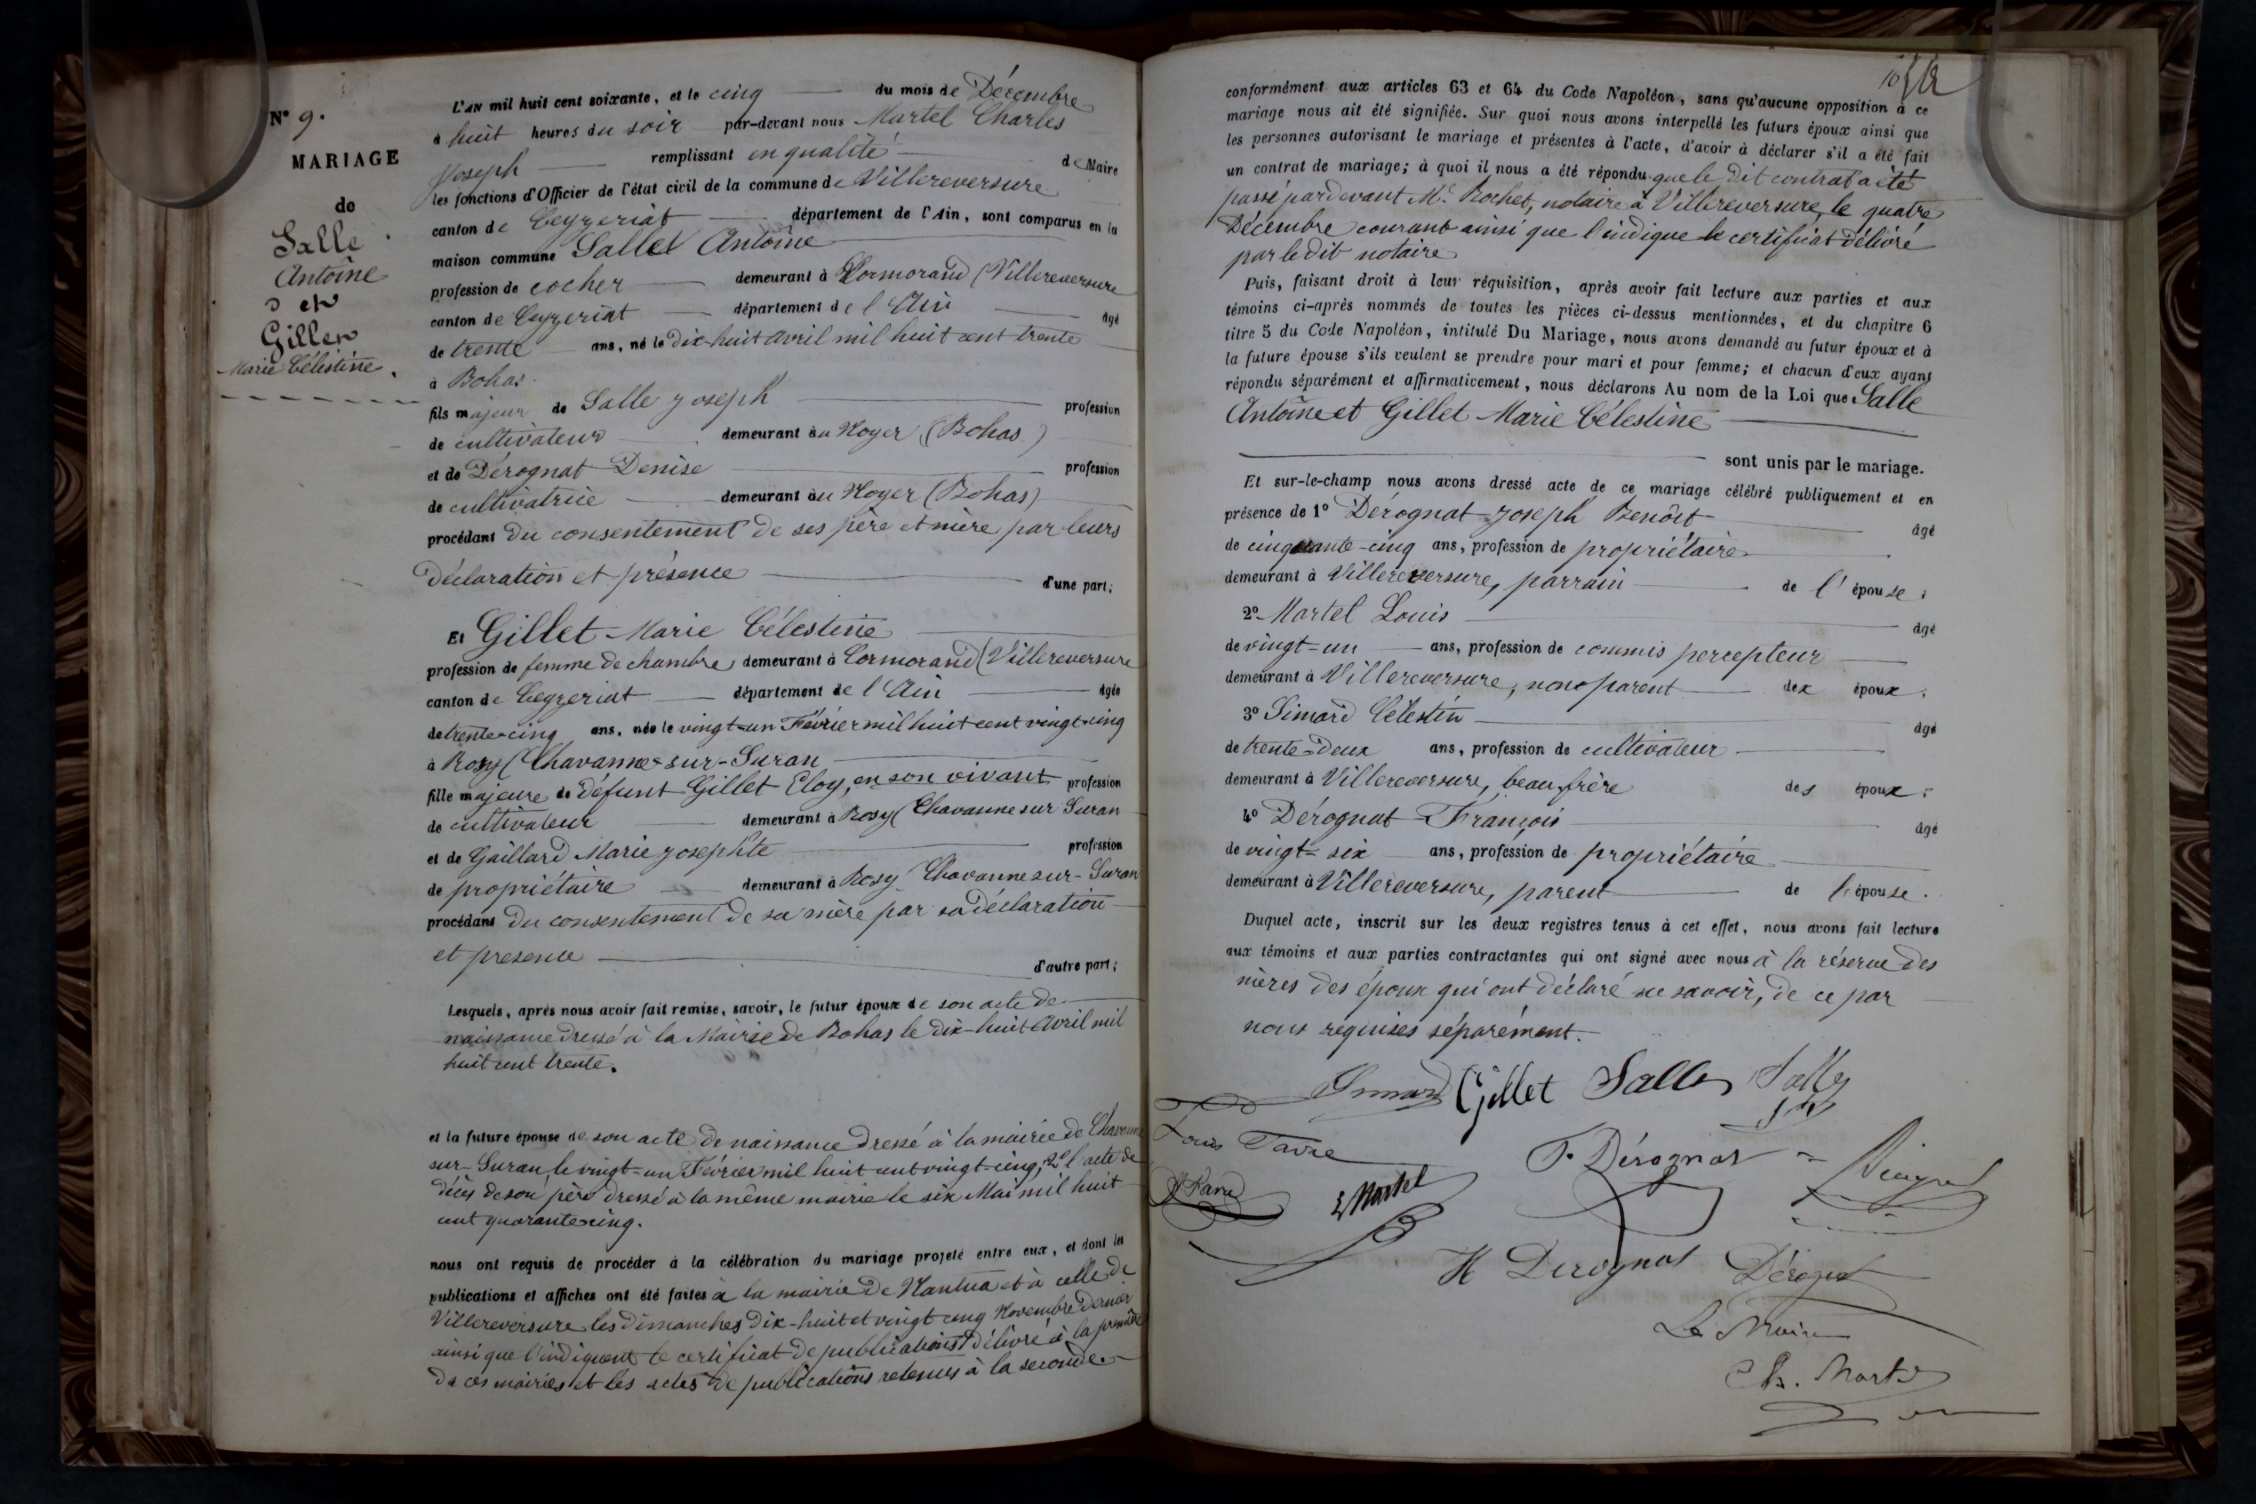 N° 9.
MARIAGE
de
Salle
Antoine
et
Gillet
Marie Célestine.
L'AN mil huit cent soixante, et le cinq du mois de Décembre
à huit heures du soir par-devant nous Martel Charles
Joseph remplissant en qualité de Maire
les fonctions d'Officier de l'état civil de la commune de Villereversure
canton de Ceyzeriat département de l'Ain, sont comparus en la
maison commune Salle Antoine
profession de cocher demeurant à Cormorand (Villereversure
canton de Ceyzeriat département de l'Ain âgé
de trente ans, né le dix-huit avril mil huit cent trente
à Bohas
fils majeur de Salle Joseph profession
de cultivateur demeurant au Noyer (Bohas)
et de Dérognat Denise profession
de cultivatrice demeurant au Noyer (Bohas)
procédant du consentement de ses père et mère par leurs
déclaration et présence d'une part;
Et Gillet Marie Célestine
profession de femme de chambre demeurant à Cormorand (Villereversure
canton de Ceyzeriat département de l'Ain âgée
de trente-cinq ans, née le vingt-un Février mil huit cent vingt-cinq
à Rosy (Chavanne-sur-Suran
fille majeure de défunt Gillet Eloy, en son vivant profession
de cultivateur demeurant à Rosy (Chavanne sur Suran
et de Gaillard Marie Josephte profession
de propriétaire demeurant à Rosy Chavanne sur-Suran
procédant du consentement de sa mère par sa déclaration
et presence d'autre part;
Lesquels, après nous avoir fait remise, savoir, le futur époux de son acte de
naissance dressé à la Mairie de Bohas le dix-huit Avril mil
huit cent trente.
et la future épouse de son acte de naissance dressé à la mairie de Chavanne
sur-Suran, le vingt-un Février mil huit cent vingt-cinq, 2° l'acte de
décès de son père dressé à la même mairie le six Mai mil huit
cent quarante-cinq.
nous ont requis de procéder à la célébration du mariage projeté entre eux, et dont les
publications et affiches ont été faites à la mairie de Nantua et à celle de
Villereversure les dimanches dix-huit et vingt cinq Novembre dernier
ainsi que l'indiquent le certificat de publications délivré à la première
de ces mairies et les actes de publications retenus à la seconde
conformément aux articles 63 et 64 du Code Napoléon, sans qu'aucune opposition à ce
mariage nous ait été signifiée. Sur quoi nous avons interpellé les futurs époux ainsi que
les personnes autorisant le mariage et présentes à l'acte, d'avoir à déclarer s'il a été fait
un contrat de mariage; à quoi il nous a été répondu que le dit contrat a été
passé pardevant Me Rochet, notaire à Villereversure, le quatre
Décembre courant ainsi que l'indique le certificat délivré
par le dit notaire
Puis, faisant droit à leur réquisition, après avoir fait lecture aux parties et aux
témoins ci-après nommés de toutes les pièces ci-dessus mentionnées, et du chapitre 6
titre 5 du Code Napoléon, intitulé Du Mariage, nous avons demandé au futur époux et à
la future épouse s'ils veulent se prendre pour mari et pour femme; et chacun d'eux ayant
répondu séparément et affirmativement, nous déclarons Au nom de la Loi que Salle
Antoine et Gillet Marie Célestine
sont unis par le mariage.
Et sur-le-champ nous avons dressé acte de ce mariage célébré publiquement et en
présence de 1° Dérognat Joseph Benoît âgé
de cinquante-cinq ans, profession de propriétaire
demeurant à Villereversure, parrain de l'épouse;
2° Martel Louis âgé
de vingt-un ans, profession de commis percepteur
demeurant à Villereversure, non parent des époux;
3° Simard Célestin âgé
de trente-deux ans, profession de cultivateur
demeurant à Villereversure, beau frère des époux;
4° Dérognat François âgé
de vingt-six ans, profession de propriétaire
demeurant à Villereversure, parent de l'épouse.
Duquel acte, inscrit sur les deux registres tenus à cet effet, nous avons fait lecture
aux témoins et aux parties contractantes qui ont signé avec nous à la réserve des
mères des époux qui ont déclaré ne savoir, de ce par
nous requises séparément.
Simard Gillet Salle Salle
Louis Favre F. Dérognat
L Martel
H Derognat Dérognat
Le Maire
Ch. Martel